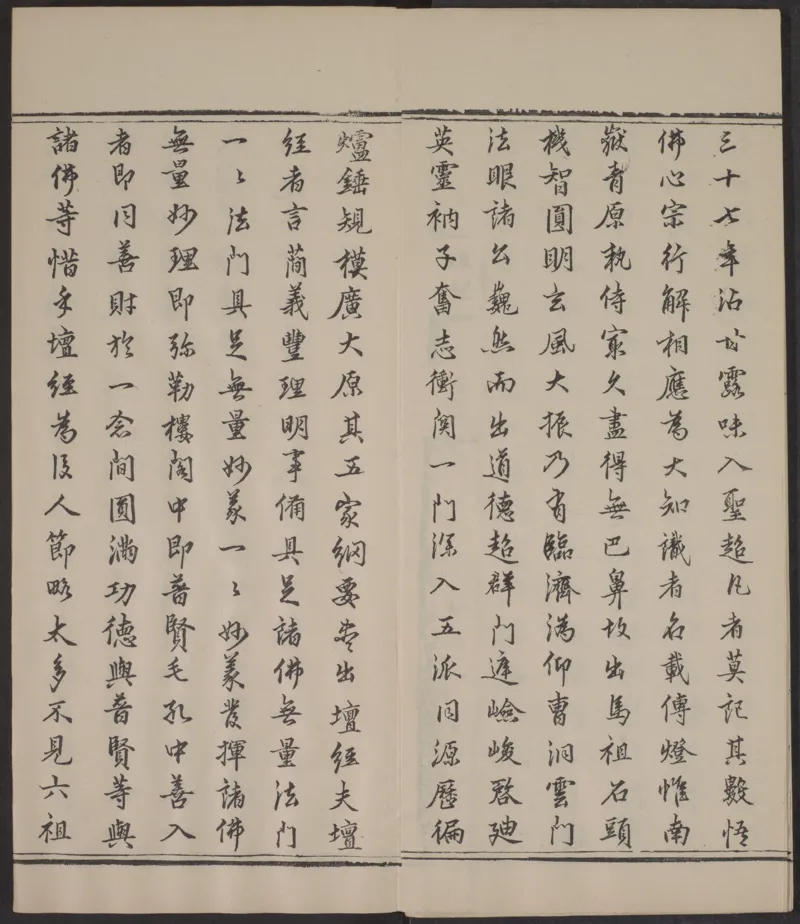 三十七年沾甘露味入聖超凡者莫記其數悟
佛心宗行解相應為大知識者名載傳燈惟南
嶽青原執侍㝡久盡得無巴鼻故出馬祖石頭
機智圓明玄風大振乃有臨濟溈仰曹洞雲門
法眼諸公巍然而出道德超群門庭嶮峻啓迪
英靈衲子奮志衝関一門深入五派同源歷徧
爐錘規模廣大原其五家綱要盡出壇經夫壇
經者言簡義豐理明事備具足諸佛無量法門
一〻法門具足無量妙義一〻妙義發揮諸佛
無量妙理即弥勒樓閣中即普賢毛孔中善入
者即同善財於一念間圓滿功德與普賢等與
諸佛等惜乎壇經為後人節略太多不見六祖